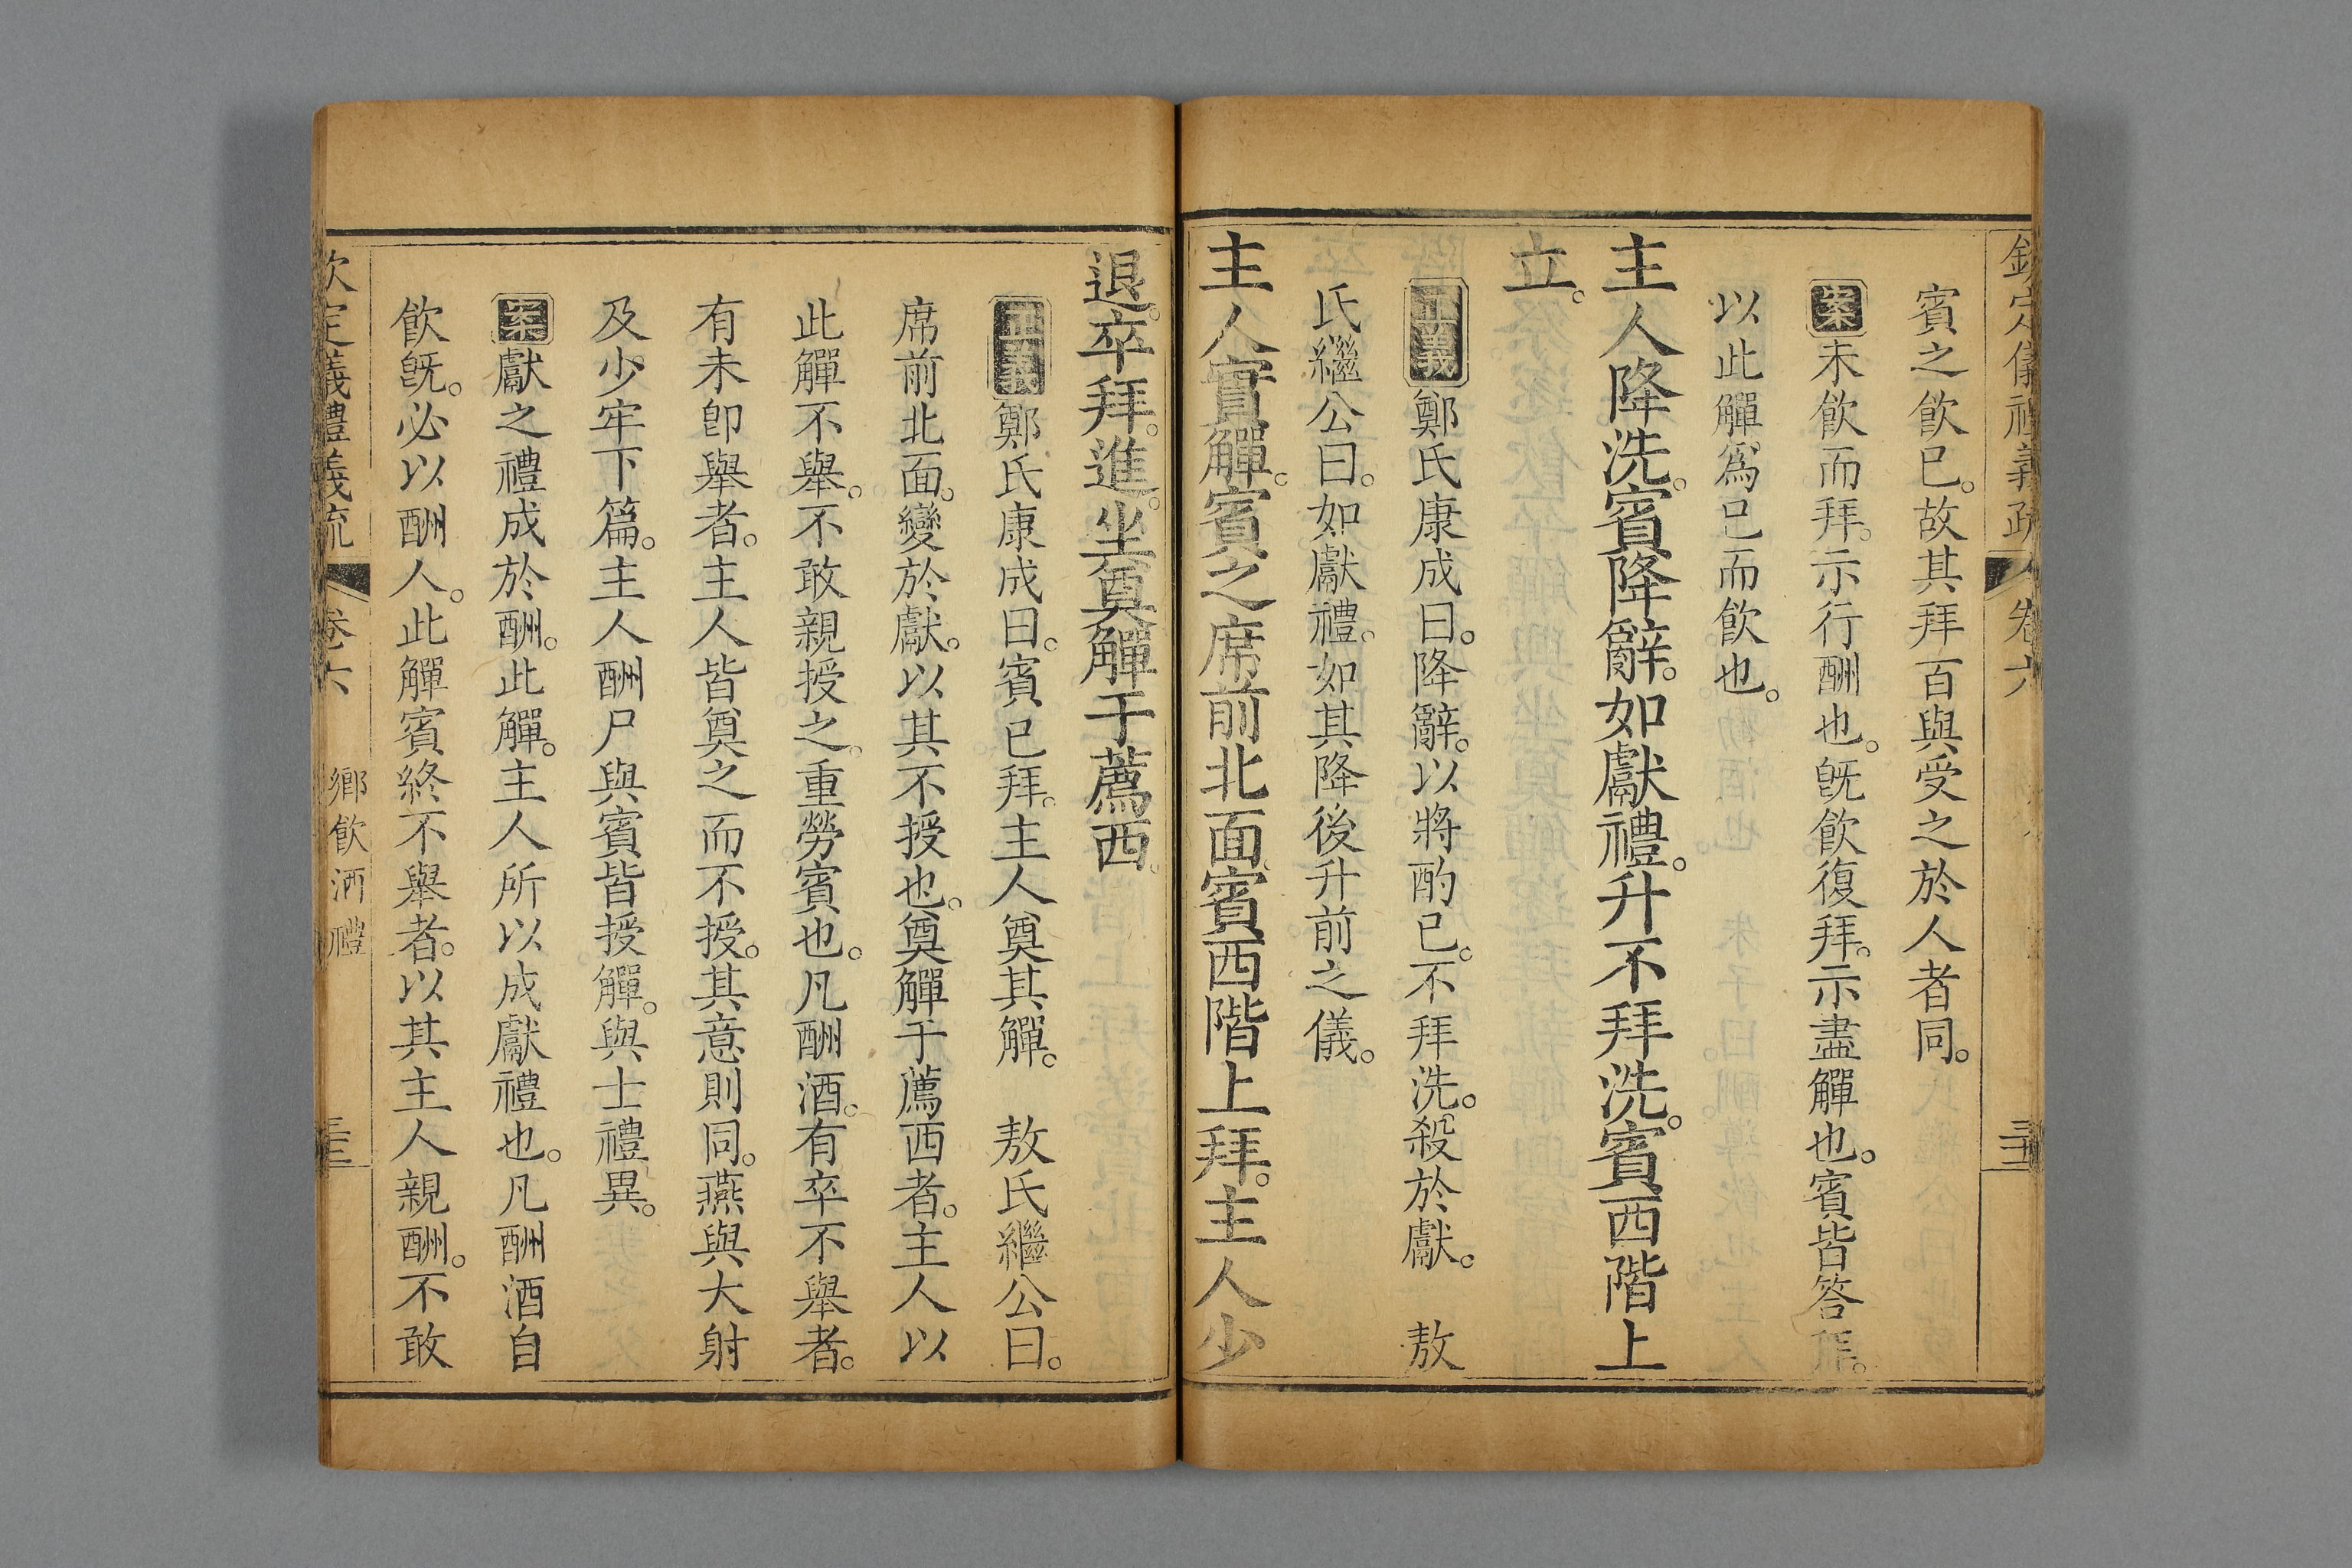 欽定儀禮義疏 卷六
賓之飲已。故其拜百與受之於人者同。
案未飲而拜。示行酬也。旣飲復拜。示盡觶也。賓皆答拜。
以此觶。爲已而飲也。
主人降洗。賓降辭。如獻禮。升不拜洗。賓西階上
立。
正義鄭氏康成曰。降辭。以將酌已。不拜洗。殺於獻。 敖
氏繼公曰。如獻禮。如其降後升前之儀。
主人實觶。賓之席前北面。賓西階上拜。主人少
退。卒拜。進。坐奠觶于薦西。
正義鄭氏康成曰。賓已拜。主人奠其觶。 敖氏繼公曰。
席前北面。變於獻。以其不授也。奠觶于薦西者。主人以
此觶不舉。不敢親授之。重勞賓也。凡酬酒。有卒不舉者。
有未卽舉者。主人皆奠之而不授。其意則同。燕與大射
及少牢下篇。主人酬尸與賓皆授觶。與士禮異。
案獻之禮成於酬。此觶。主人所以成獻禮也。凡酬酒自
飲旣。必以酬人。此觶賓終不舉者。以其主人親酬。不敢
欽定儀禮義疏 卷六 鄉飲酒禮